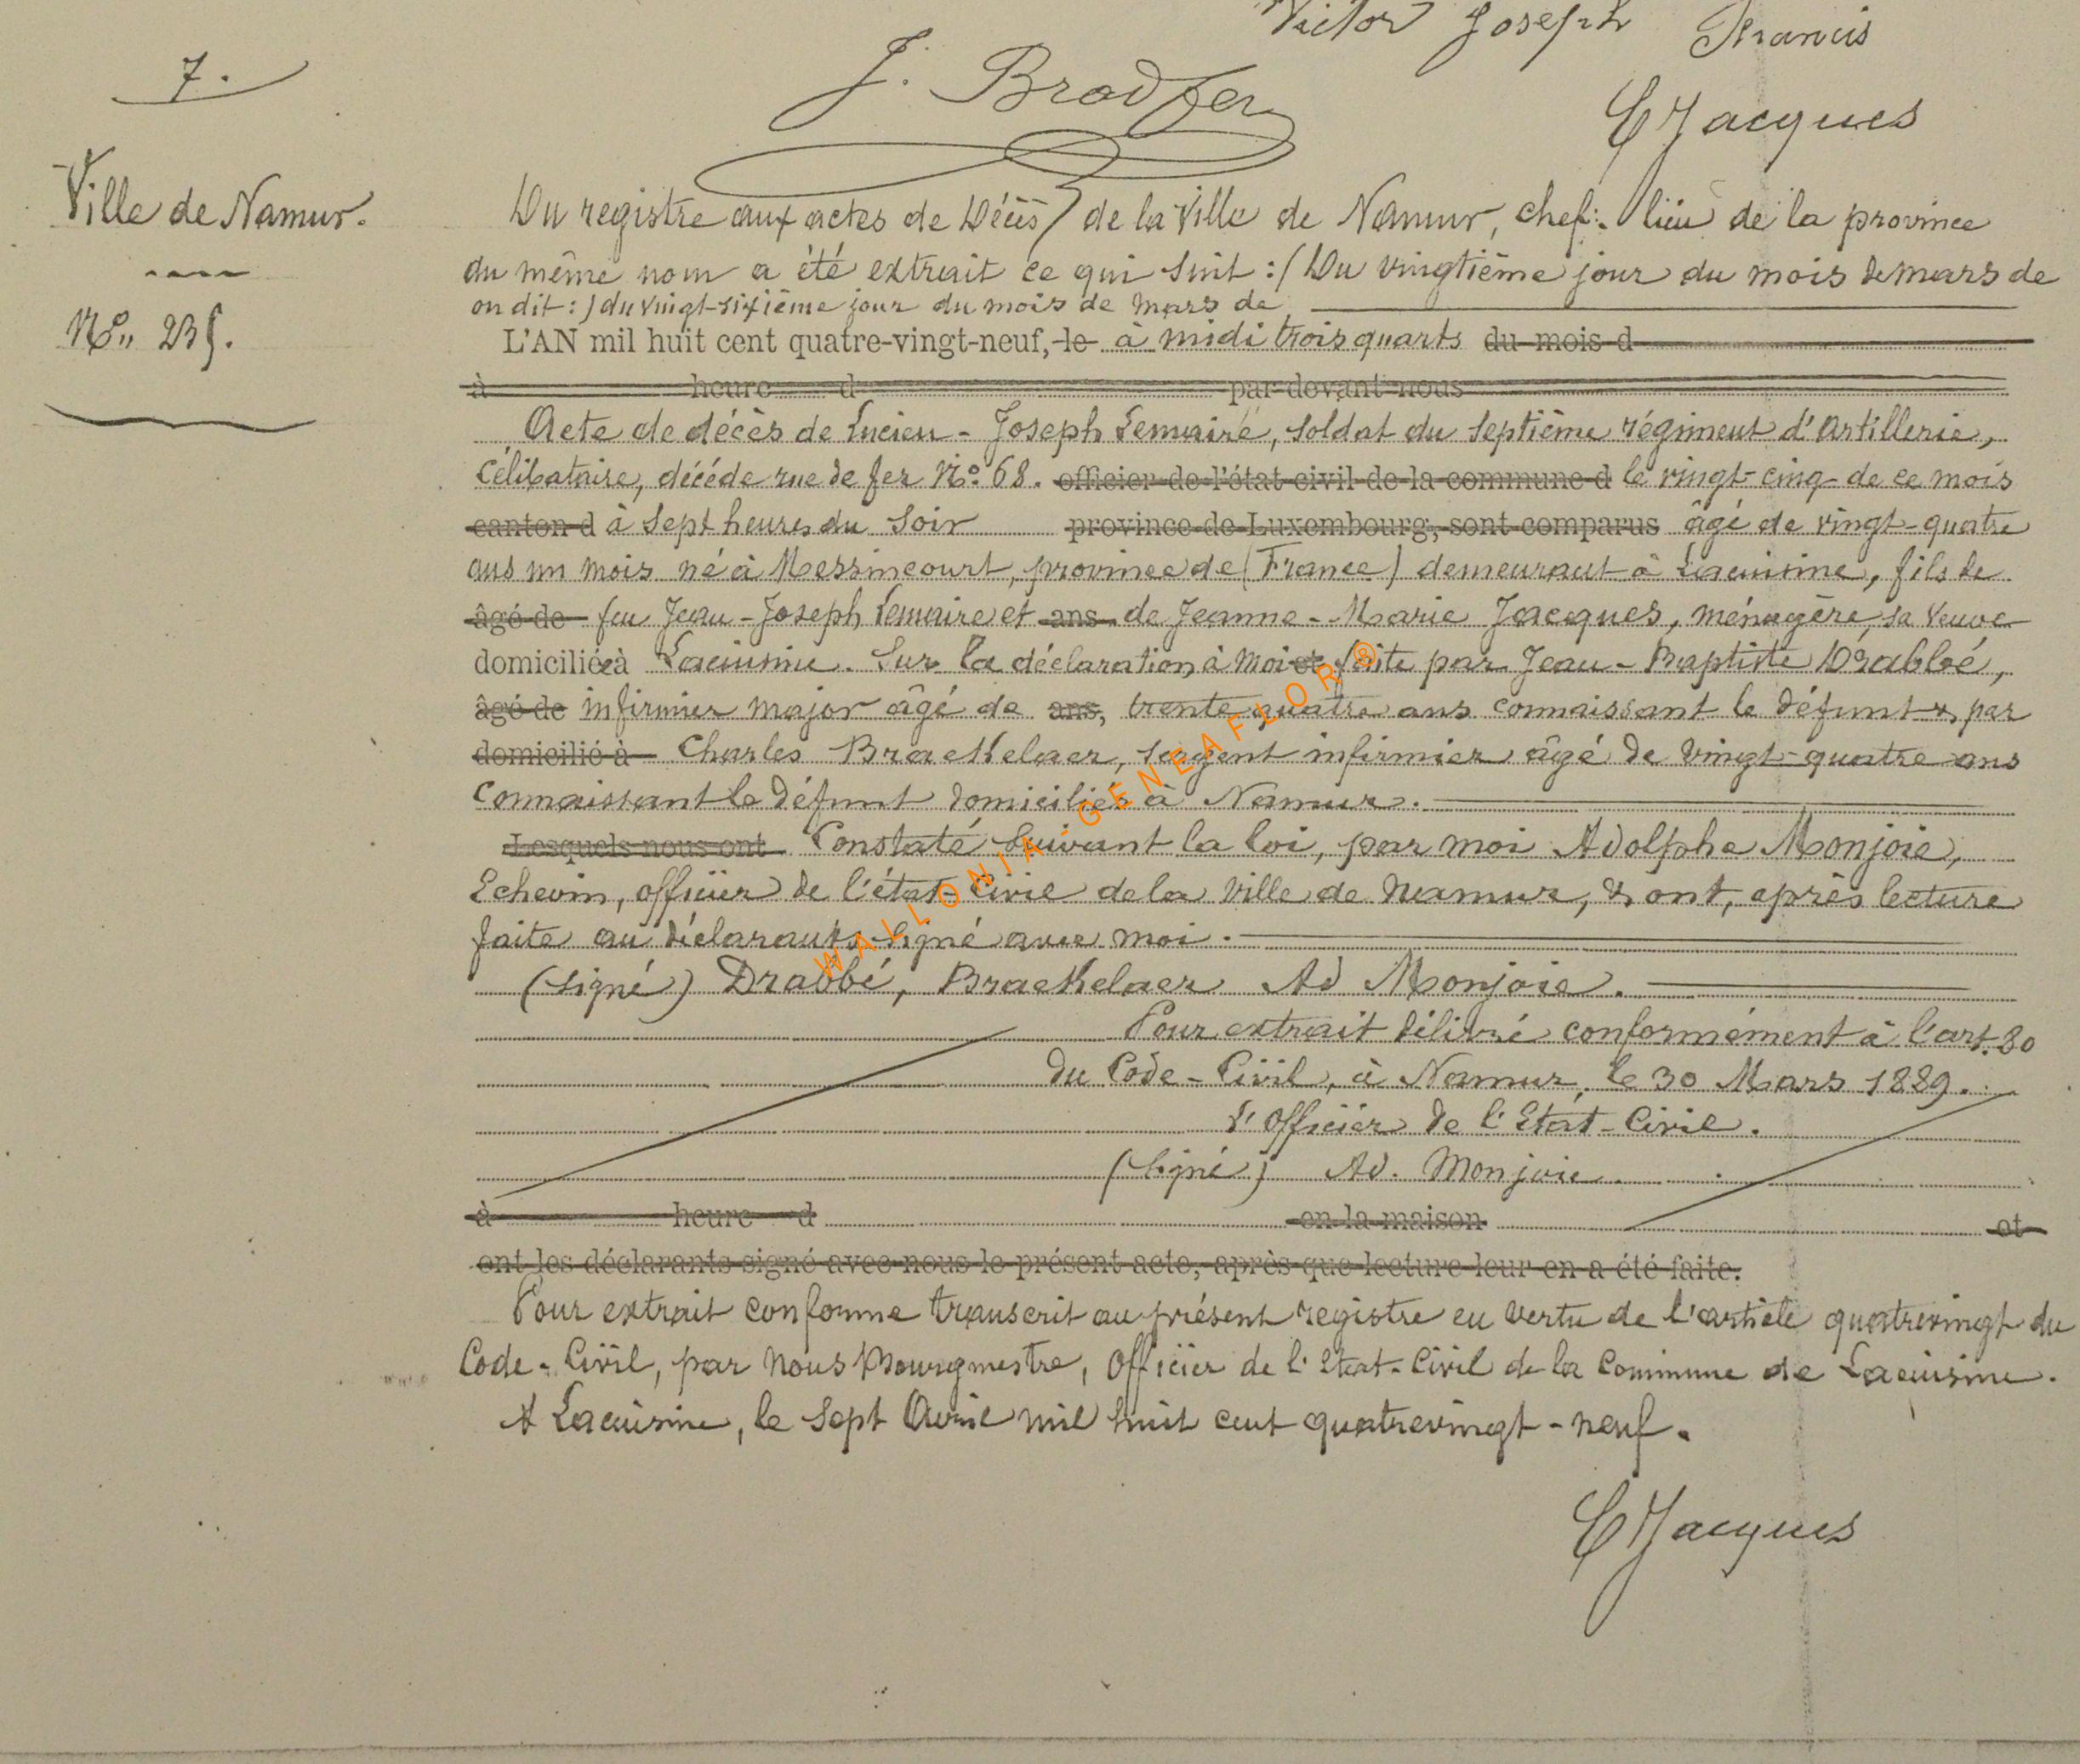 Victor Joseph Francis
J. Bradfer
CJacques
7.
Ville de Namur.
No. 235.
Du registre aux actes de Décès de la Ville de Namur, chef-lieu de la province
du même nom a été extrait ce qui suit : / Du vingtième jour du mois de mars de
on dit : ) du vingt-sixième jour du mois de mars de
L'AN mil huit cent quatre-vingt-neuf, le à midi trois quarts du mois d
à heure d par devant nous
Acte de décès de Lucien-Joseph Lemaire, soldat du septième régiment d'Artillerie,
célibataire, décédé rue de fer No. 68. officier de l'état civil de la commune d le vingt-cinq de ce mois
canton d à sept heures du soir province de Luxembourg, sont comparus âgé de vingt-quatre
ans un mois né à Messincourt, province de (France) demeurant à Lacuisine, fils de
âgé de feu Jean-Joseph Lemaire et ans de Jeanne-Marie Jacques, ménagère, sa veuve
domiciliée à Lacuisine. Sur la déclaration à moi et faite par Jean-Baptiste Drabbé,
âgé de infirmier major âgé de ans, trente quatre ans connaissant le défunt & par
domicilié à Charles Braekelaer, sergent infirmier âgé de vingt-quatre ans
connaissant le défunt domiciliés à Namur.
Lesquels nous ont Constaté suivant la loi, par moi Adolphe Monjoie,
Echevin, officier de l'état-civil de la ville de Namur, & ont, après lecture
faite au déclarants signé avec moi.
(signé) Drabbé, Braekelaer Ad Monjoie.
Pour extrait délivré conformément à l'art. 80
du Code-Civil, à Namur, le 30 Mars 1889.
l'officier de l'Etat-Civil.
(signé) Ad. Monjoie.
à heure d en la maison et
ont les déclarants signé avec nous le présent acte, après que lecture leur en a été faite.
Pour extrait conforme transcrit au présent registre en vertu de l'article quatrevingt du
Code-Civil, par nous Bourgmestre, officier de l'Etat-Civil de la Commune de Lacuisine.
A Lacuisine, le sept Avril mil huit cent quatrevingt-neuf.
CJacques
WALLONIA-GENEAFLOR®